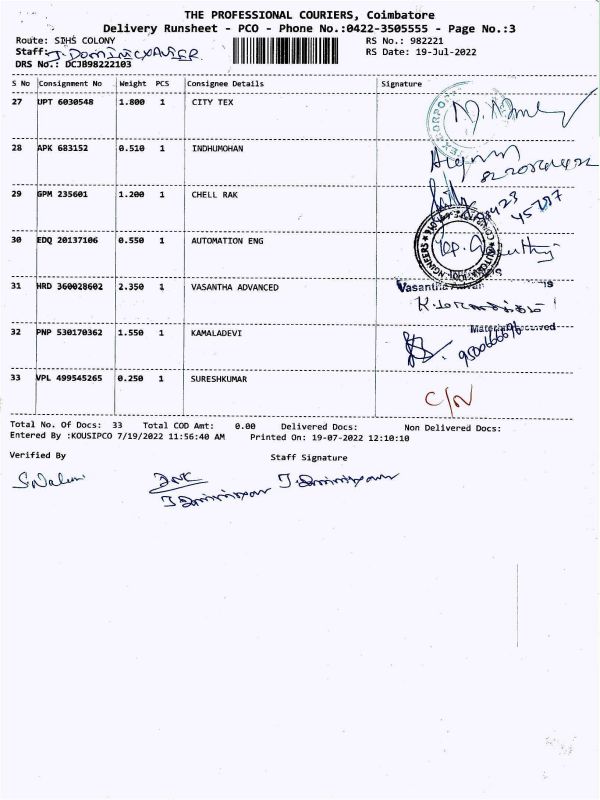 THE PROFESSIONAL COURIERS, Coimbatore
Delivery Runsheet - PCO - Phone No.:0422-3505555 - Page No.:3
Route: SIHS COLONY RS No.: 982221
Staff: J. DOMINICXAVIER RS Date: 19-Jul-2022
DRS No.: DCJB98222103
S No Consignment No Weight PCS Consignee Details Signature
27 UPT 6030548 1.800 1 CITY TEX
28 APK 683152 0.510 1 INDHUMOHAN
29 GPM 235601 1.200 1 CHELL RAK
30 EDQ 20137106 0.550 1 AUTOMATION ENG
31 HRD 360028602 2.350 1 VASANTHA ADVANCED
Vasantha
32 PNP 530170362 1.550 1 KAMALADEVI
Material Received
33 VPL 499545265 0.250 1 SURESHKUMAR
C/N
Total No. Of Docs: 33 Total COD Amt: 0.00 Delivered Docs: Non Delivered Docs:
Entered By :KOUSIPCO 7/19/2022 11:56:40 AM Printed On: 19-07-2022 12:10:10
Verified By Staff Signature